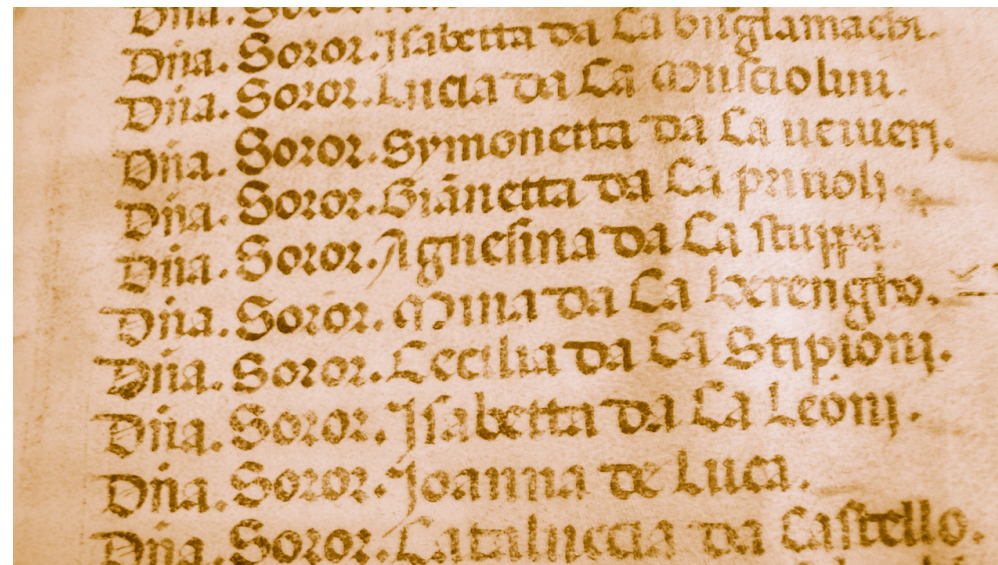 Dña. Soror.
Dña. Soror. Isabetta da Ca
Dña. Soror. Lucia da Ca Musciolini.
Dña. Soror. Symonetta da Ca
Dña. Soror. Giānetta da Ca priuoli.
Dña. Soror. Agnesina da Ca stuppa.
Dña. Soror. Mina da Ca berengho.
Dña. Soror. Cecilia da Ca Stipioni.
Dña. Soror. Isabetta da Ca Leoni.
Dña. Soror. Joanna de Luca.
Dña. Soror. Cataluccia da Castello.